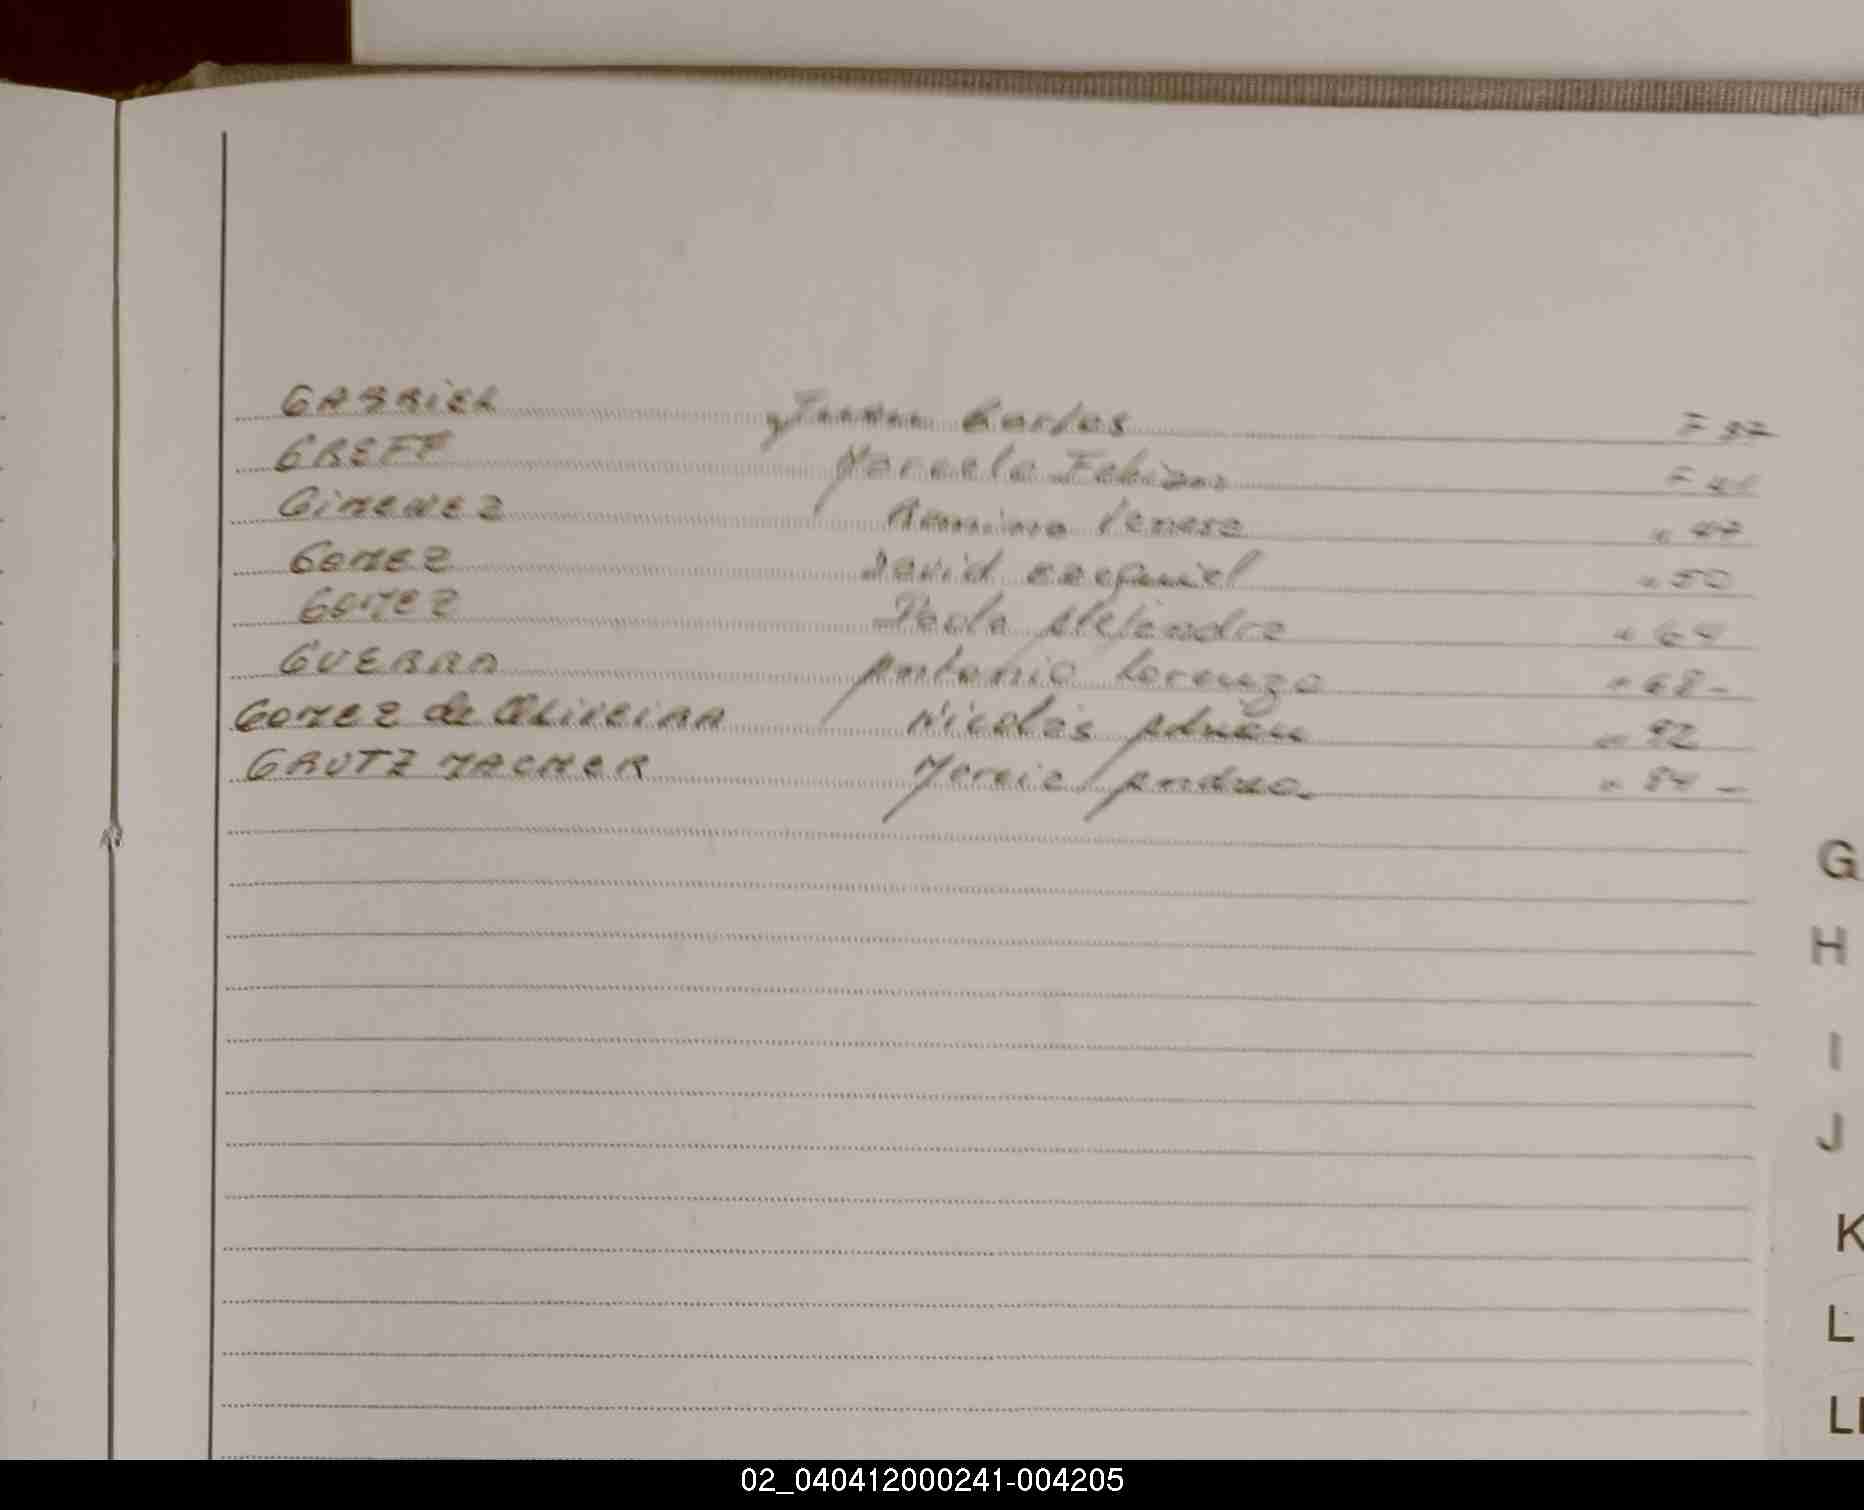 GABRIEL Juan Carlos F 37
GREFF Marcelo Fabian F 41
GIMENEZ Romina Vanesa " 47
GOMEZ David Ezequiel " 50
GOMEZ Paola Alejandra " 64
GUERRA Antonio Lorenzo " 68 -
GOMEZ de OLIVEIRA Nicolás Adrián " 92
GRUTZMACHER María Andrea. " 84 -
G
H
I
J
K
L
LL
02_040412000241-004205